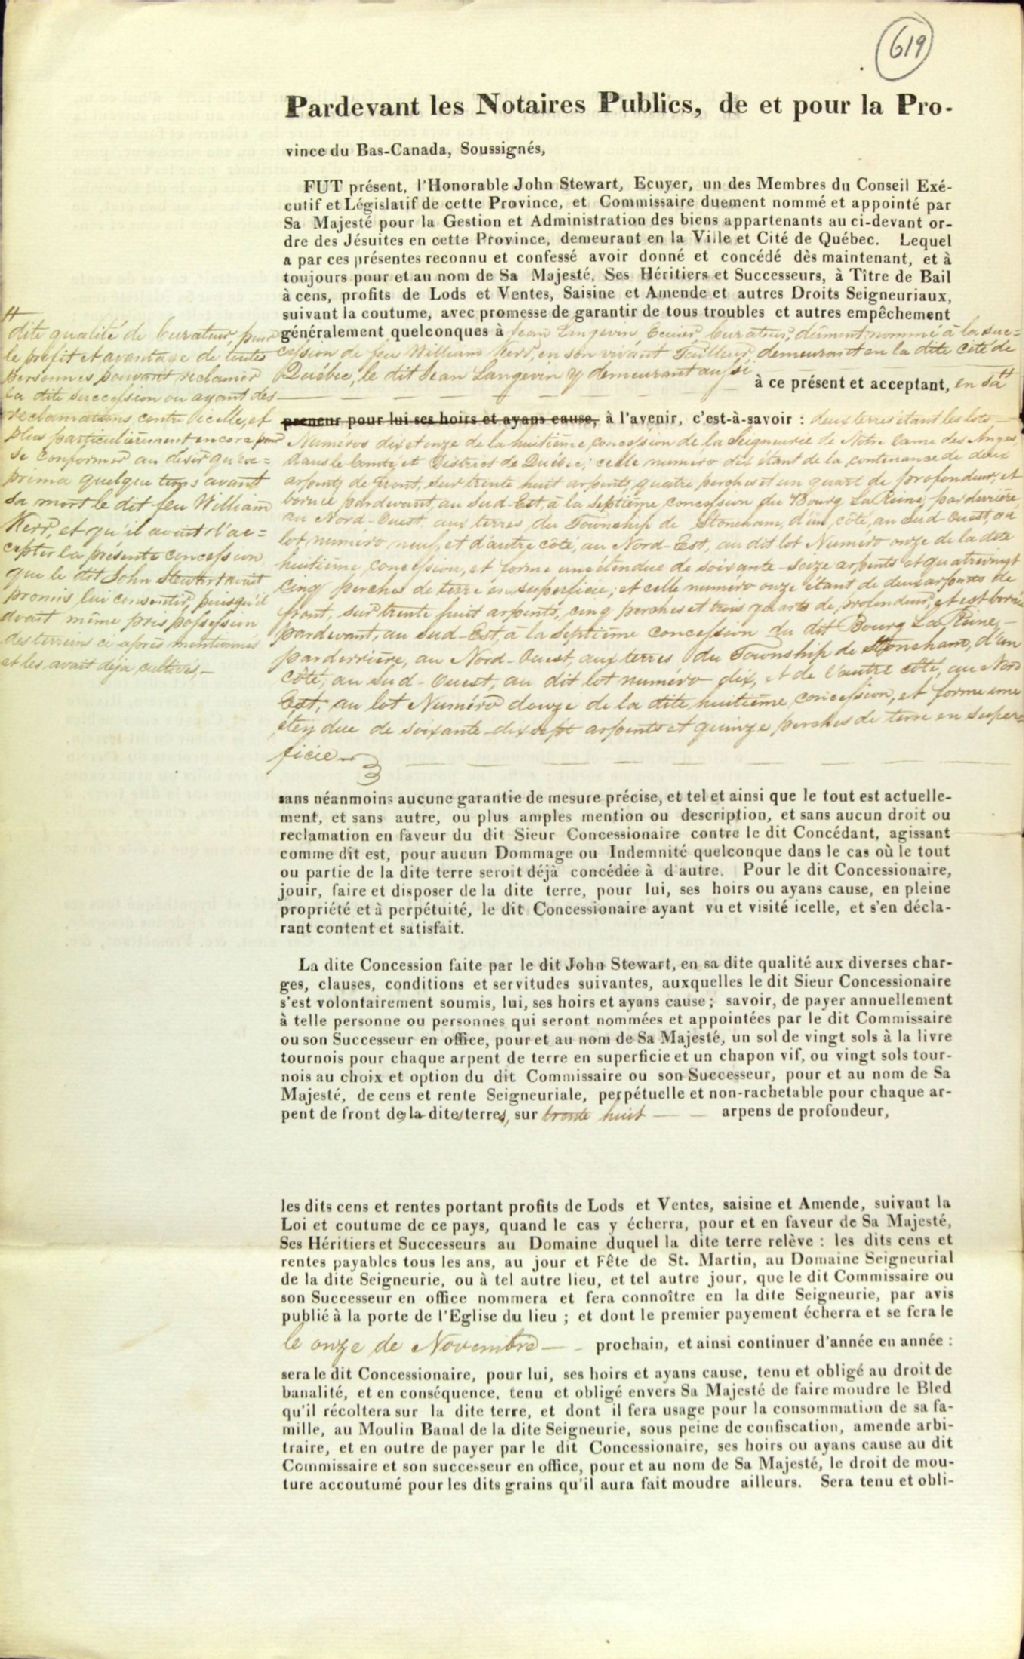 619
Pardevant les Notaires Publics, de et pour la Pro-
vince du Bas-Canada, Soussignés,
FUT présent, l'Honorable John Stewart, Ecuyer, un des Membres du Conseil Exé-
cutif et Législatif de cette Province, et Commissaire duement nommé et appointé par
Sa Majesté pour la Gestion et Administration des biens appartenants au ci-devant or-
dre des Jésuites en cette Province, demeurant en la Ville et Cité de Québec. Lequel
a par ces présentes reconnu et confessé avoir donné et concédé dès maintenant, et à
toujours pour et au nom de Sa Majesté, Ses Héritiers et Successeurs, à Tître de Bail
à cens, profits de Lods et Ventes, Saisine et Amende et autres Droits Seigneuriaux,
suivant la coutume, avec promesse de garantir de tous troubles et autres empêchement
généralement quelconques à Jean Langevin Ecuier, Curateur, dûment nommé à la suc-
cession de feu William Kerr, en son vivant Tailleur, demeurant en la dite Cité de
Québec, le dit Jean Langevin y demeurant aussi
à ce présent et acceptant, en sa #
preneur pour lui ses hoirs et ayans cause, à l'avenir, c'est-à-savoir : deux terres étant les lots
Numéros dix et onze de la huitième concession de la Seigneurie de Notre Dame des Anges,
dans le Comté et District de Québec; celle numéro dix étant de la continence de deux
arpents de front, sur trente huit arpents, quatre perches et un quart de profondeur, et
bornée pardevant, au Sud-Est, à la septième concession du Bourg La Reine, par derrière
au Nord-Ouest, aux terres du Township de Stoneham, d'un côté, au Sud-Ouest, au
lot numéro neuf, et d'autre côté, au Nord-Est, au dit lot Numéro onze de la dite
huitième concession, et forme une étendue de soixante-seize arpents et quatrevingt
cinq perches de terre en superficie; et celle numéro onze étant de deux arpents de
front, sur trente huit arpents, cinq perches et trois quarts de profondeur, et est bornée
pardevant, au Sud-Est, à la Septième concession du dit Bourg La Reine,
par derrière, au Nord-Ouest, aux terres du Township de Stoneham, d'un
côté, au Sud-Ouest, au dit lot numéro dix, et de l'autre côté, au Nord
Est, au lot Numéro douze de la dite huitième concession, et forme une
étendue de soixante-dix sept arpents et quinze perches de terre en super-
ficie
#
dite qualité de Curateur, pour
le profit et avantage de toutes
personnes pouvant réclamer
la dite succession ou ayant des
réclamations contre icelle, et
plus particulièrement encore pour
se conformer au désir qu'ex-
prima quelque tems avant
sa mort le dit feu William
Kerr, et qu'il avait d'ac-
cepter la présente concession
que le dit John Stewart avait
promis lui consentir, puisqu'il
avait même pris possession
des terrains ci après mentionnés
et les avait déjà cultivés,
sans néanmoins aucune garantie de mesure précise, et tel et ainsi que le tout est actuelle-
ment, et sans autre, ou plus amples mention ou description, et sans aucun droit ou
reclamation en faveur du dit Sieur Concessionaire contre le dit Concédant, agissant
comme dit est, pour aucun Dommage ou Indemnité quelconque dans le cas où le tout
ou partie de la dite terre seroit déjà concédée à d'autre. Pour le dit Concessionaire,
jouir, faire et disposer de la dite terre, pour lui, ses hoirs ou ayans cause, en pleine
propriété et à perpétuité, le dit Concessionaire ayant vu et visité icelle, et s'en décla-
rant content et satisfait.
La dite Concession faite par le dit John Stewart, en sa dite qualité aux diverses char-
ges, clauses, conditions et servitudes suivantes, auxquelles le dit Sieur Concessionaire
s'est volontairement soumis, lui, ses hoirs et ayans cause ; savoir, de payer annuellement
à telle personne ou personnes qui seront nommées et appointées par le dit Commissaire
ou son Successeur en office, pour et au nom de Sa Majesté, un sol de vingt sols à la livre
tournois pour chaque arpent de terre en superficie et un chapon vif, ou vingt sols tour-
nois au choix et option du dit Commissaire ou son Successeur, pour et au nom de Sa
Majesté, de cens et rente Seigneuriale, perpétuelle et non-rachetable pour chaque ar-
pent de front des dites terres, sur trente huit arpens de profondeur,
les dits cens et rentes portant profits de Lods et Ventes, saisine et Amende, suivant la
Loi et coutume de ce pays, quand le cas y écherra, pour et en faveur de Sa Majesté,
Ses Héritiers et Successeurs au Domaine duquel la dite terre relève : les dits cens et
rentes payables tous les ans, au jour et Fête de St. Martin, au Domaine Seigneurial
de la dite Seigneurie, ou à tel autre lieu, et tel autre jour, que le dit Commissaire ou
son Successeur en office nommera et fera connoître en la dite Seigneurie, par avis
publié à la porte de l'Eglise du lieu ; et dont le premier payement écherra et se fera le
le onze de Novembre prochain, et ainsi continuer d'année en année :
sera le dit Concessionaire, pour lui, ses hoirs et ayans cause, tenu et obligé au droit de
banalité, et en conséquence, tenu et obligé envers Sa Majesté de faire moudre le Bled
qu'il récoltera sur la dite terre, et dont il fera usage pour la consommation de sa fa-
mille, au Moulin Banal de la dite Seigneurie, sous peine de confiscation, amende arbi-
traire, et en outre de payer par le dit Concessionaire, ses hoirs ou ayans cause au dit
Commissaire et son successeur en office, pour et au nom de Sa Majesté, le droit de mou-
ture accoutumé pour les dits grains qu'il aura fait moudre ailleurs. Sera tenu et obli-